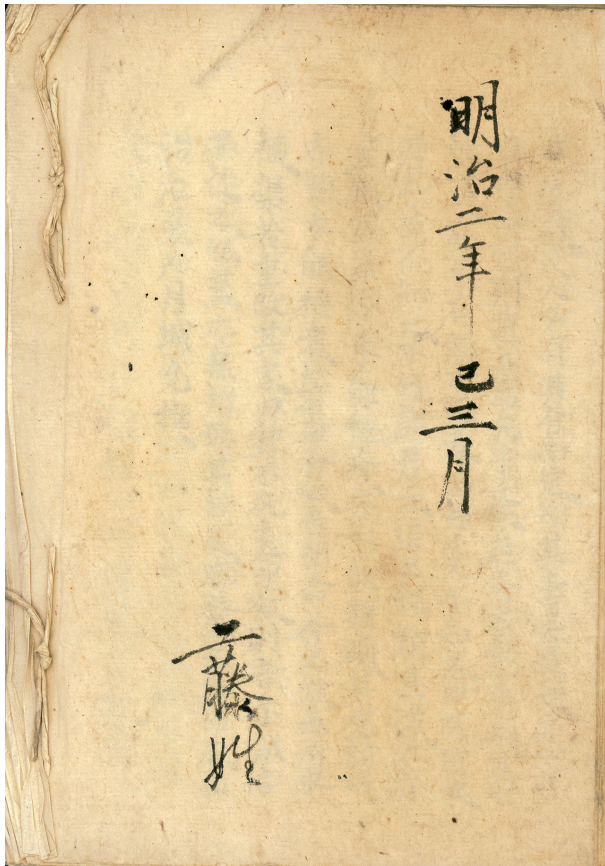 明治二年 己三月
二藤姓